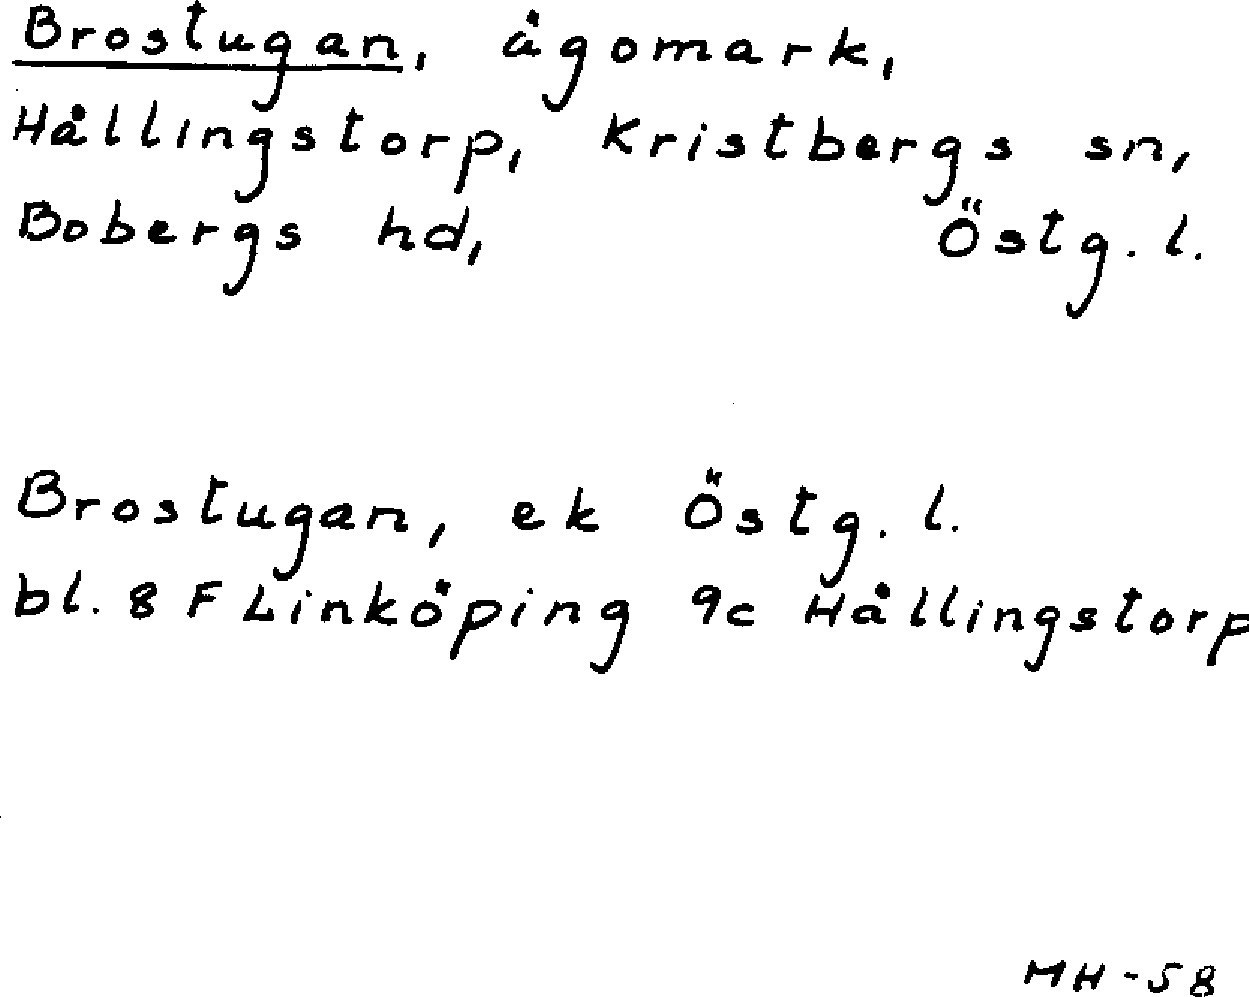 Brostugan, ägomark,
Hållingstorp, Kristbergs sn,
Bobergs hd, Östg. l.
Brostugan, ek Östg. l.
bl. 8 F Linköping 9c Hållingstorp
MH-58